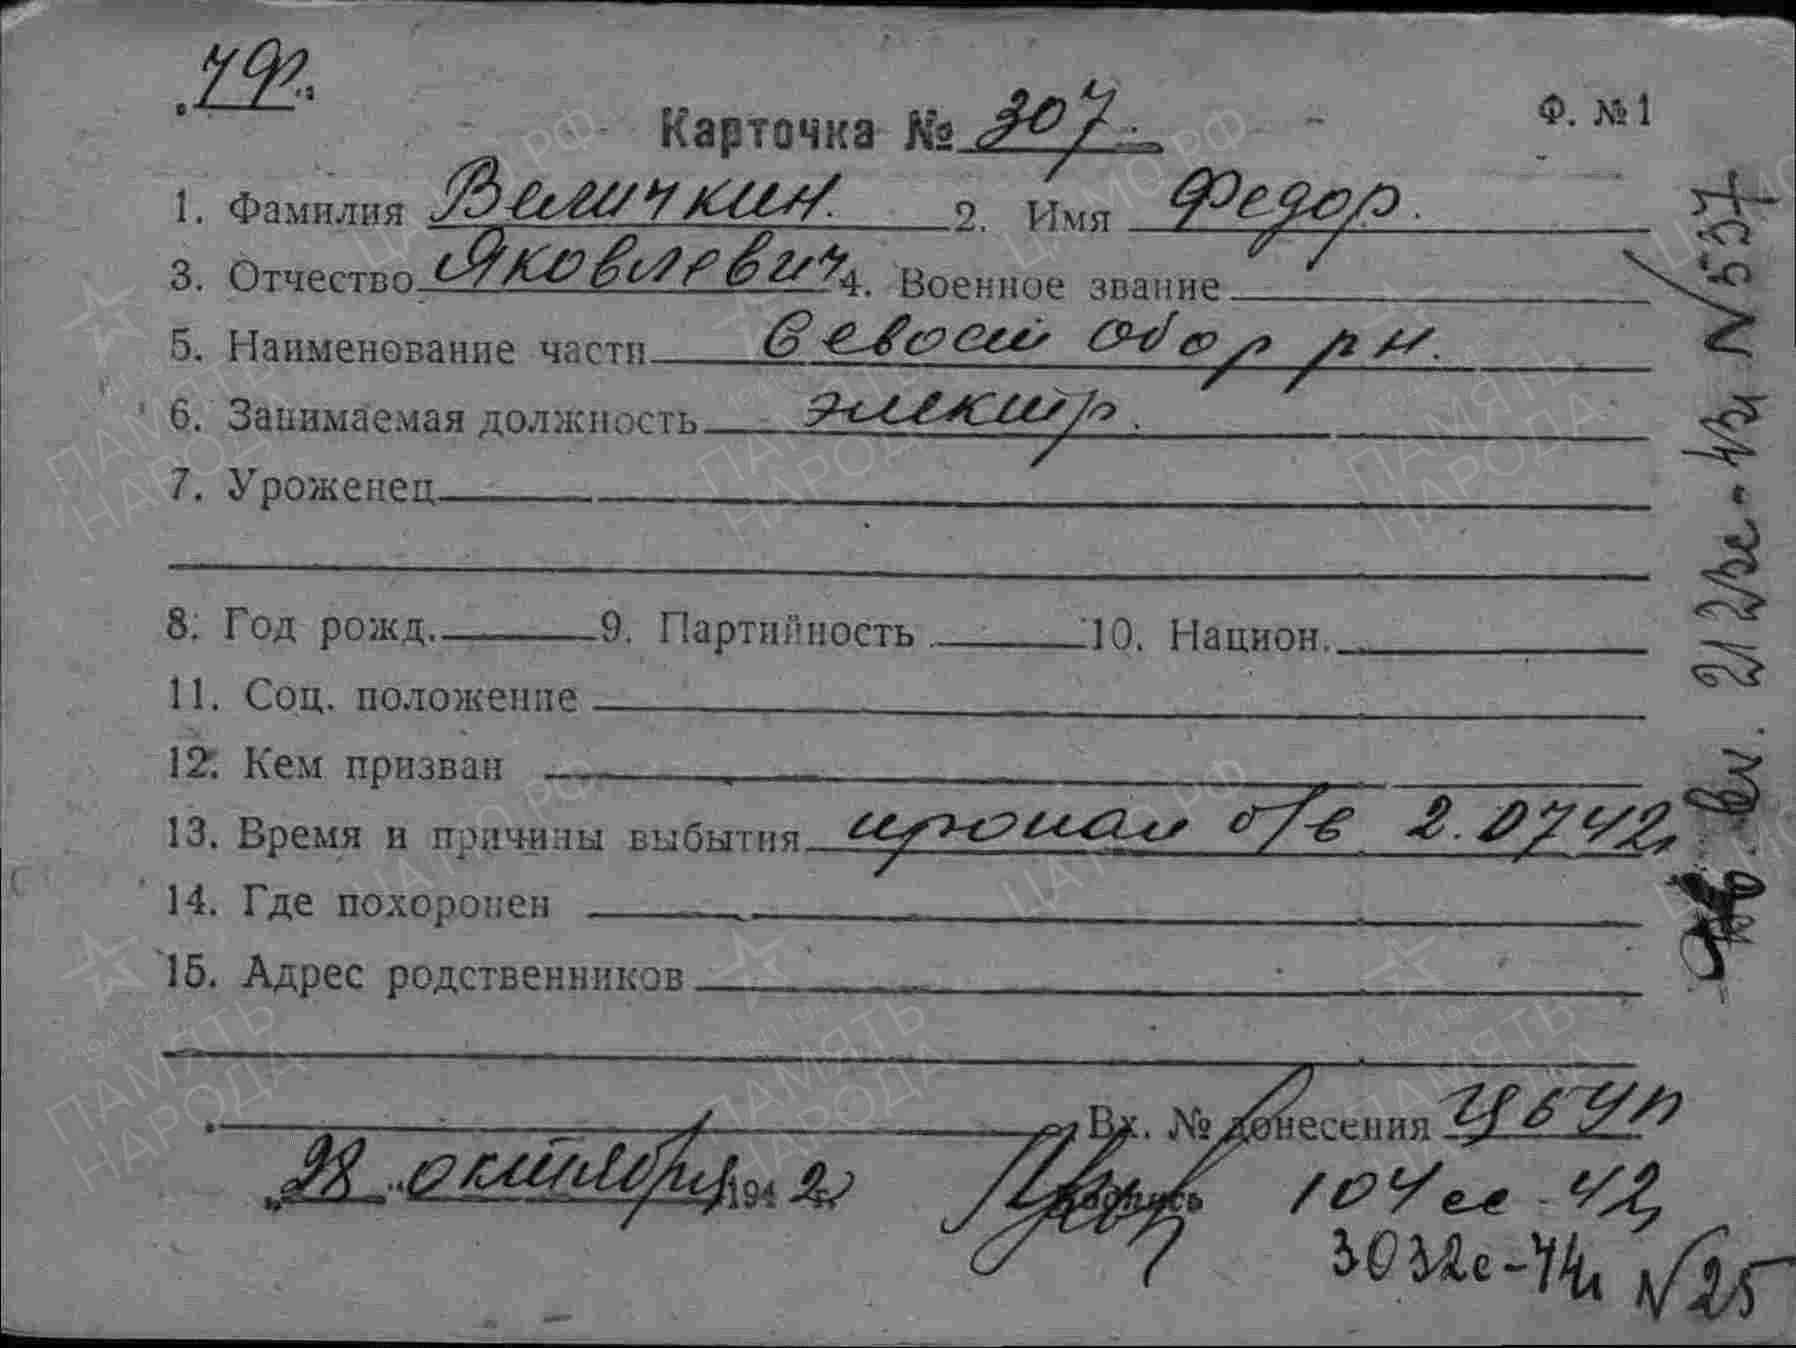 ЧФ.
Ф. №1
Карточка № 307
1. Фамилия Величкин. 2. Имя Федор.
3. Отчество Яковлевич 4. Военное звание
5. Наименование части Севаст Обор рн.
6. Занимаемая должность электр.
7. Уроженец
8. Год рожд. 9. Партийность 10. Национ.
11. Соц. положение
12. Кем призван
13. Время и причины выбытия пропал б/в 2.07 42г
14. Где похоронен
15. Адрес родственников
Вх. № донесения ЦБУП
"28" октября 1942 подпись 104сс-42г
3032с-44г №25
вх. 2123с-43г №537
ПАМЯТЬ НАРОДА
ЦАМО РФ